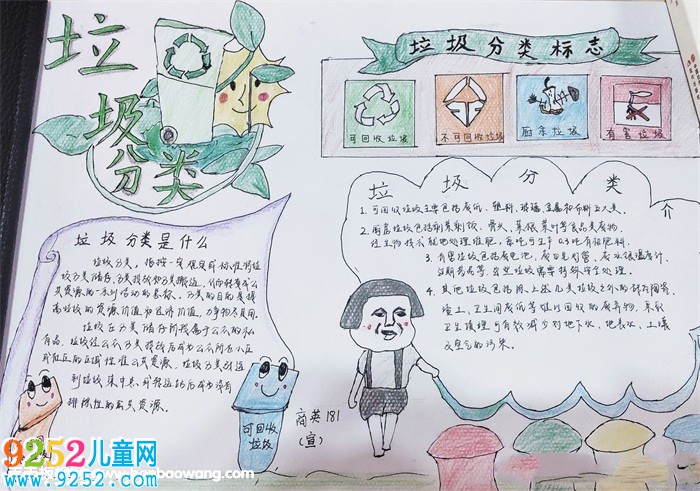 垃
圾
分类
垃圾分类标志
可回收垃圾
不可回收垃圾
厨余垃圾
有害垃圾
垃圾分类是什么
垃圾分类，指按一定规定或标准将垃
圾分类储存、分类投放和分类搬运，从而转变成公
共资源的一系列活动的总称。分类的目的是提
高垃圾的资源价值和经济价值，力争物尽其用。
垃圾在分类储存阶段属于公众的私
有品，垃圾经公众分类投放后成为公众所在小区
或社区的区域性准公共资源，垃圾分类
到垃圾集中点或转运站后成为没有
排除性的公共资源。
可回收
垃圾
商英181
(宣)
垃圾分类介
1. 可回收垃圾主要包括废纸、塑料、玻璃、金属和布料五大类。
2. 厨房垃圾包括剩菜剩饭、骨头、菜根菜叶等食品类废物，
经生物技术就地处理堆肥，每吨可生产0.3吨有机肥料。
3. 有害垃圾包括废电池、废日光灯管、废水银温度计、
过期药品等，这些垃圾需要特殊安全处理。
4. 其他垃圾包括除上述几类垃圾之外的砖瓦陶瓷
渣土、卫生间废纸等难以回收的废弃物，采取
卫生填埋可有效减少对地下水、地表水、土壤
及空气的污染。
9252儿童网
www.9252.com
baowang.com